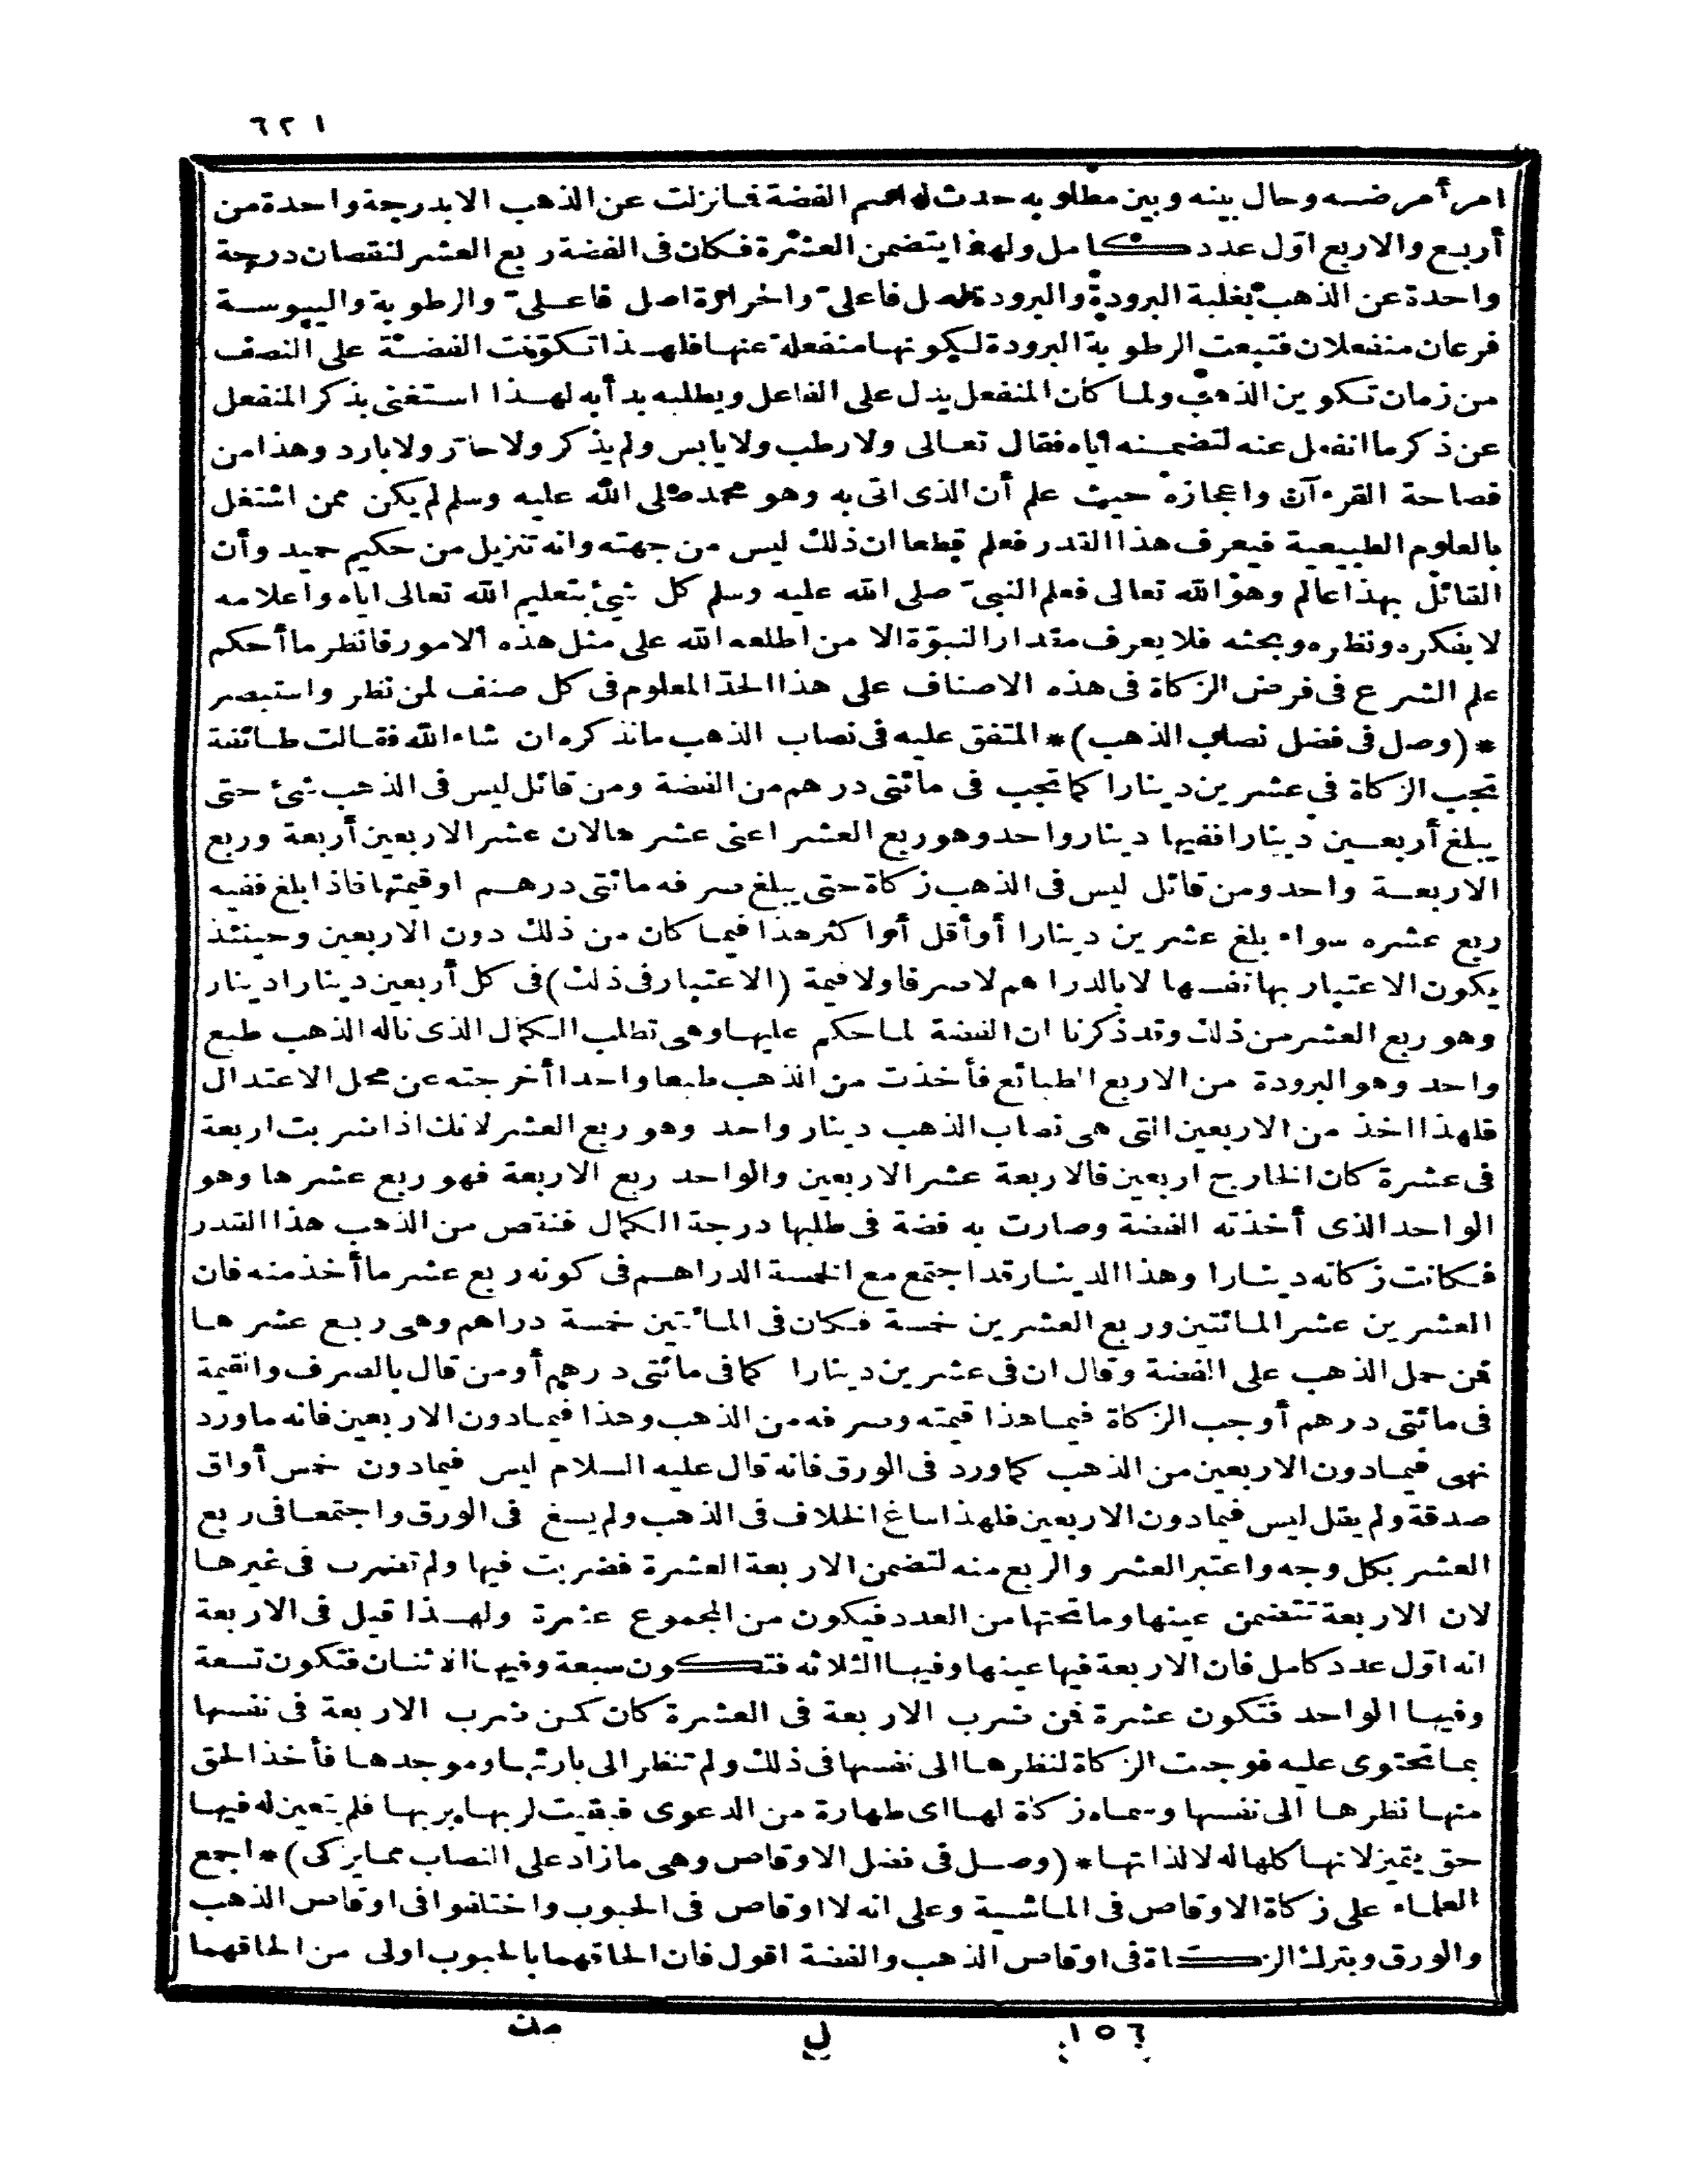 ٦٢١
امر أمرضه وحال بينه وبين مطلوبه حدث له اسم الفضة فما نزلت عن الذهب الا بدرجة واحدة من
أربع والاربع اول عدد كامل ولهذا يتضمن العشرة فكان فى الفضة ربع العشر لنقصان درجة
واحدة عن الذهب بغلبة البرودة والبرودة اصل فاعلىّ والحرارة اصل فاعلىّ والرطوبة واليبوسة
فرعان منفعلان فتبعت الرطوبة البرودة لكونها منفعلة عنها فلهذا تكوّنت الفضة على النصف
من زمان تكوين الذهب ولما كان المنفعل يدل على الفاعل ويطلبه بذاته لهذا استغنى بذكر المنفعل
عن ذكر ما انفعل عنه لتضمنه اياه فقال تعالى ولا رطب ولا يابس ولم يذكر ولا حارّ ولا بارد وهذا من
فصاحة القرءآن واعجازه حيث علم أن الذى اتى به وهو محمد صلى الله عليه وسلم لم يكن ممن اشتغل
بالعلوم الطبيعية فيعرف هذا القدر فعلم قطعا ان ذلك ليس من جهته وانه تنزيل من حكيم حميد وأن
القائل بهذا عالم وهو الله تعالى فعلم النبىّ صلى الله عليه وسلم كل شئ بتعليم الله تعالى اياه واعلامه
لا بفكره ونظره وبحثه فلا يعرف مقدار النبوّة الا من اطلعه الله على مثل هذه الامور فانظر ما أحكم
علم الشرع فى فرض الزكاة فى هذه الاصناف على هذا الحدّ المعلوم فى كل صنف لمن نظر واستبصر
* (وصل فى فضل نصاب الذهب) * المتفق عليه فى نصاب الذهب ما نذكره ان شاء الله فقالت طائفة
تجب الزكاة فى عشرين دينارا كما تجب فى مائتى درهم من الفضة ومن قائل ليس فى الذهب شئ حتى
يبلغ أربعين دينارا ففيها دينار واحد وهو ربع العشر اعنى عشرها لان عشر الاربعين أربعة وربع
الاربعة واحد ومن قائل ليس فى الذهب زكاة حتى يبلغ صرفه مائتى درهم او قيمتها فاذا بلغ ففيه
ربع عشره سواء بلغ عشرين دينارا أو أقل أو اكثر هذا فيما كان من ذلك دون الاربعين وحينئذ
يكون الاعتبار بها نفسها لا بالدراهم لا صرفا ولا قيمة (الاعتبار فى ذلك) فى كل أربعين دينارا دينار
وهو ربع العشر من ذلك وقد ذكرنا ان الفضة لما حكم عليها وهى تطلب الكمال الذى ناله الذهب طبع
واحد وهو البرودة من الاربع الطبائع فأخذت من الذهب طبعا واحدا أخرجته عن محل الاعتدال
فلهذا اخذ من الاربعين التى هى نصاب الذهب دينار واحد وهو ربع العشر لانك اذا ضربت اربعة
فى عشرة كان الخارج اربعين فالاربعة عشر الاربعين والواحد ربع الاربعة فهو ربع عشرها وهو
الواحد الذى أخذته الفضة وصارت به فضة فى طلبها درجة الكمال فنقص من الذهب هذا القدر
فكانت زكاته دينارا وهذا الدينار قد اجتمع مع الخمسة الدراهم فى كونه ربع عشر ما أخذ منه فان
العشرين عشر المائتين وربع العشرين خمسة فكان فى المائتين خمسة دراهم وهى ربع عشرها
فمن حمل الذهب على الفضة وقال ان فى عشرين دينارا كما فى مائتى درهم أو من قال بالصرف والقيمة
فى مائتى درهم أوجب الزكاة فيما هذا قيمته وصرفه من الذهب وهذا فيما دون الاربعين فانه ما ورد
نهى فيما دون الاربعين من الذهب كما ورد فى الورق فانه قال عليه السلام ليس فيما دون خمس أواق
صدقة ولم يقل ليس فيما دون الاربعين فلهذا ساغ الخلاف فى الذهب ولم يسغ فى الورق واجتمعا فى ربع
العشر بكل وجه واعتبر العشر والربع منه لتضمن الاربعة العشرة فضربت فيها ولم تضرب فى غيرها
لان الاربعة تتضمن عينها وما تحتها من العدد فيكون من المجموع عشرة ولهذا قيل فى الاربعة
انه اوّل عدد كامل فان الاربعة فيها عينها وفيها الثلاثة فتكون سبعة وفيها الاثنان فتكون تسعة
وفيها الواحد فتكون عشرة فمن ضرب الاربعة فى العشرة كان كمن ضرب الاربعة فى نفسها
بما تحتوى عليه فوجبت الزكاة لنظرها الى نفسها فى ذلك ولم تنظر الى بارئها وموجدها فأخذ الحق
منها نظرها الى نفسها وسماه زكاة لها اى طهارة من الدعوى فبقيت لربها بربها فلم يتعين له فيها
حق يتميز لانها كلها له لا لذاتها * (وصل فى فضل الاوقاص وهى ما زاد على النصاب مما يزكى) * اجمع
العلماء على زكاة الاوقاص فى الماشية وعلى انه لا اوقاص فى الحبوب واختلفوا فى اوقاص الذهب
والورق وبترك الزكاة فى اوقاص الذهب والفضة اقول فان الحاقهما بالحبوب اولى من الحاقهما
١٥٦ ل مت